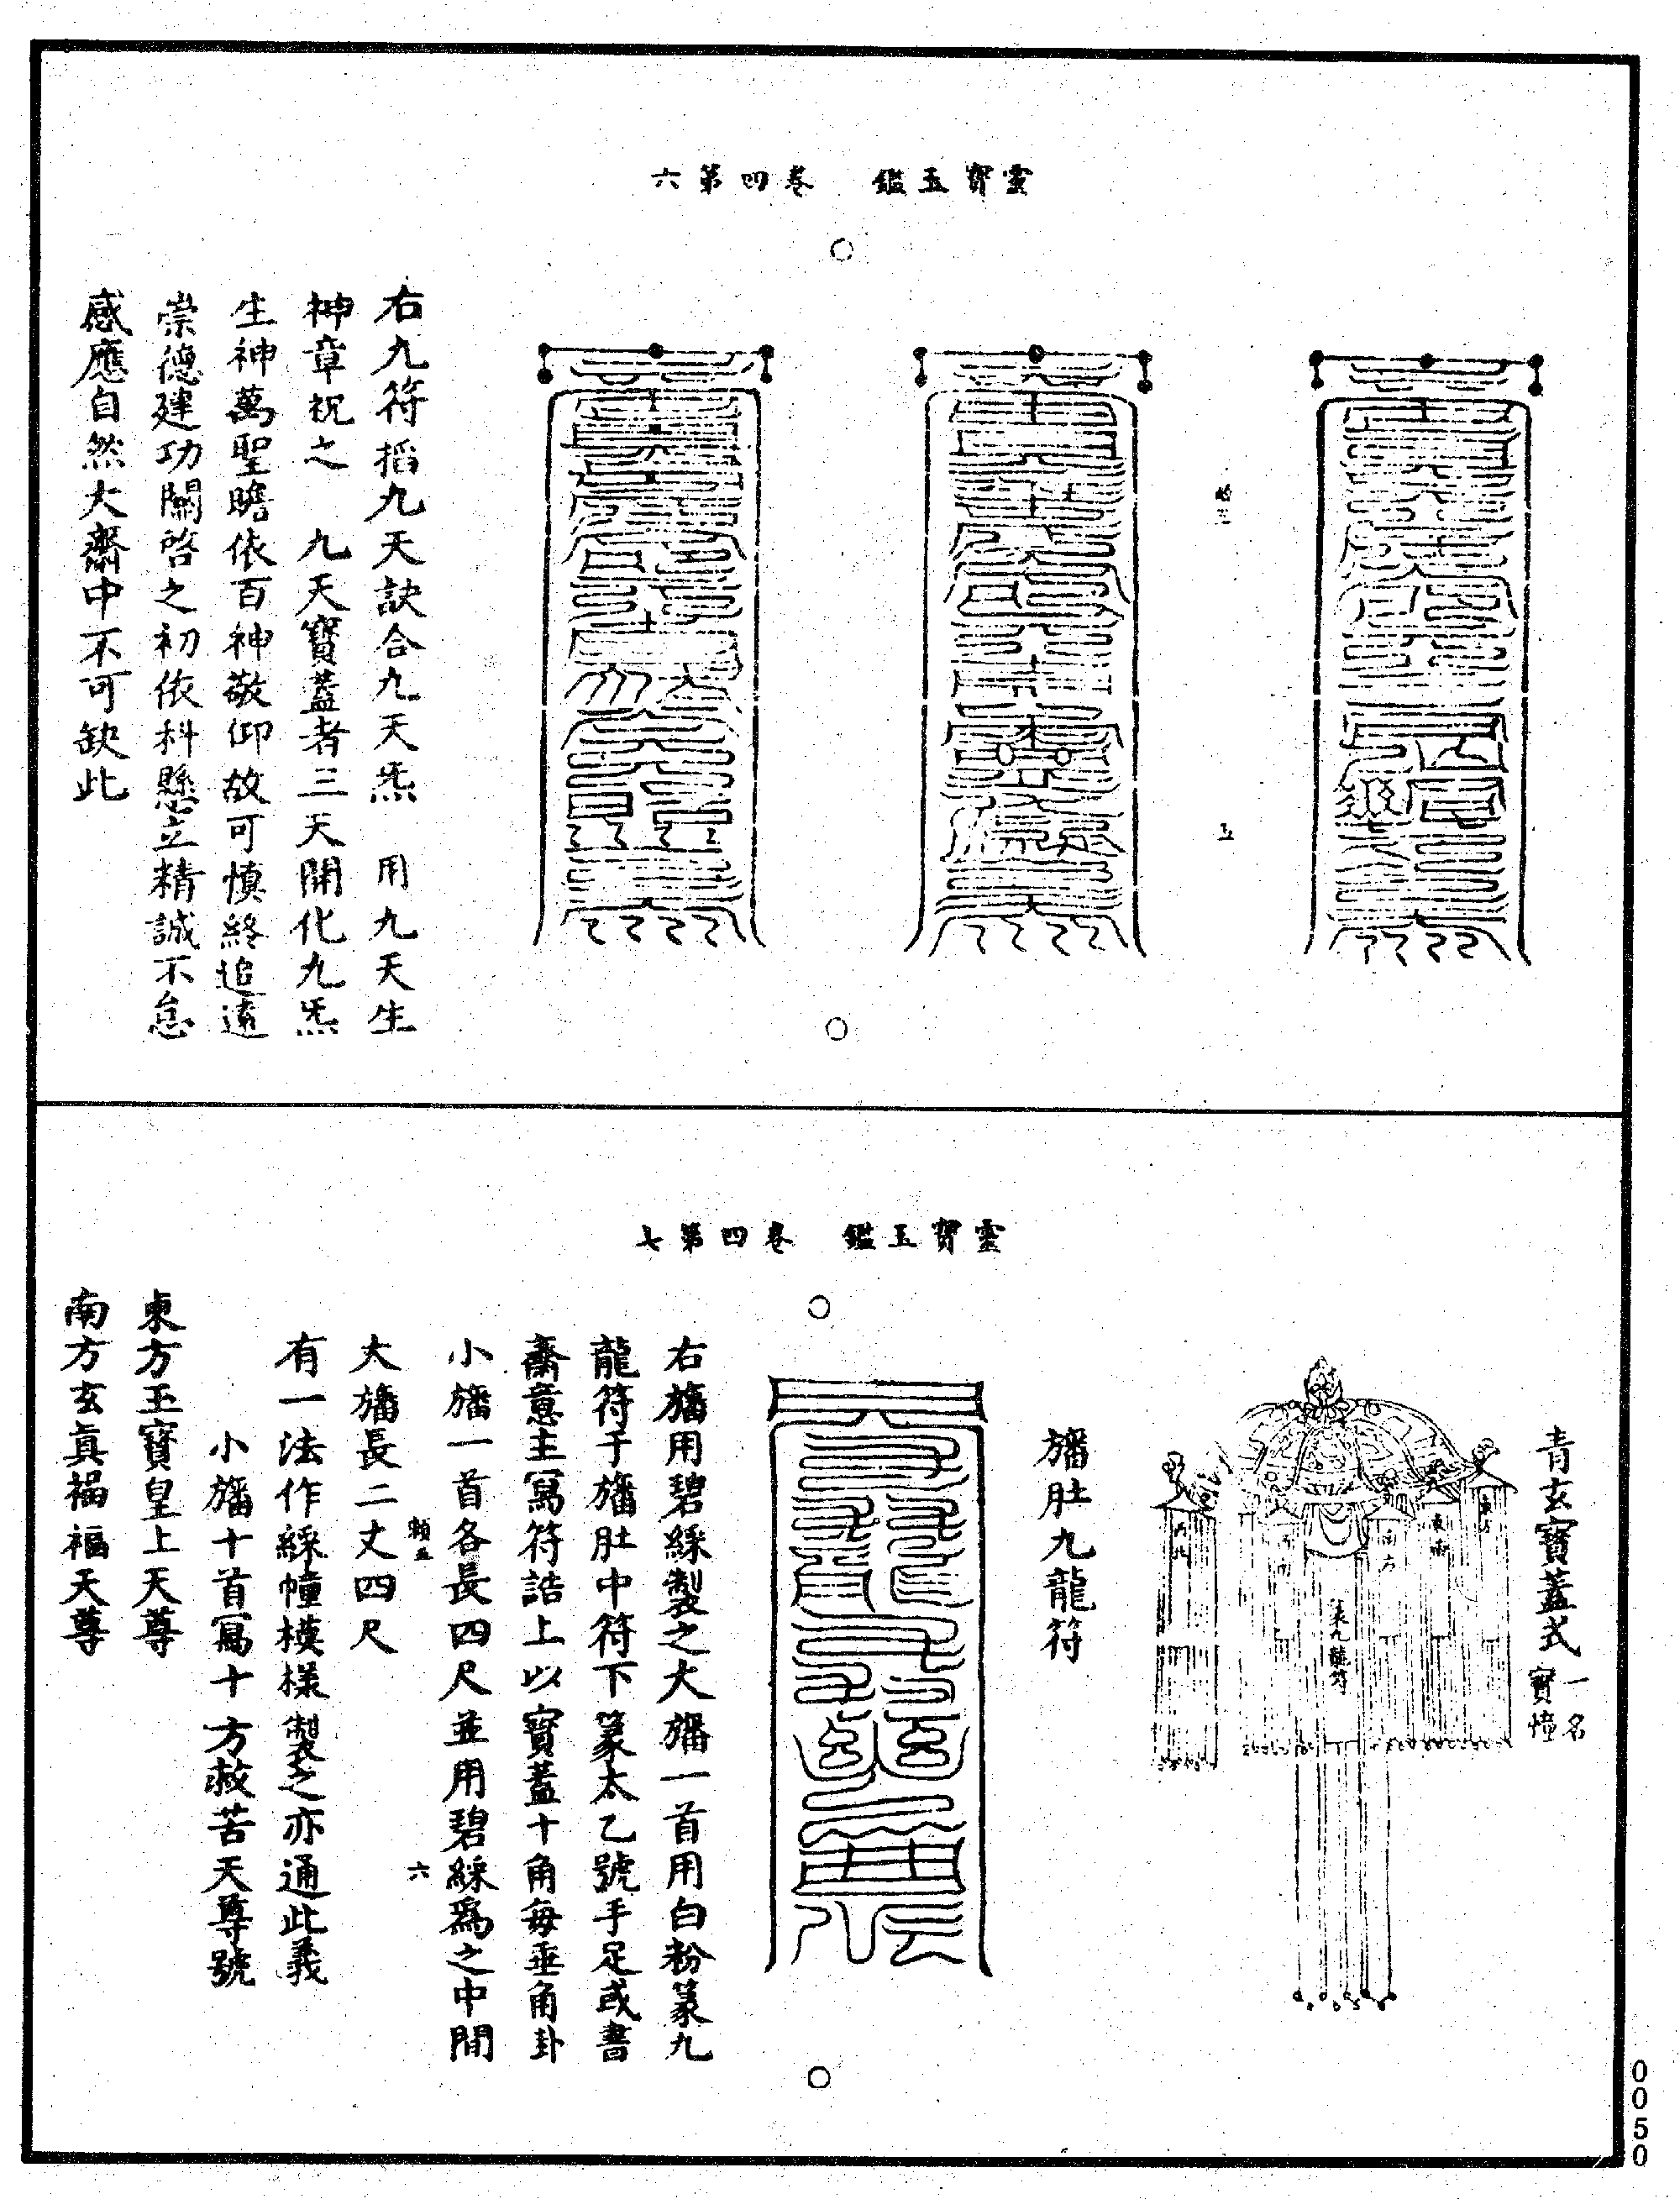 靈寶玉鑑　卷四第六
右九符掐九天訣合九天炁　用九天生
神章祝之　九天寶蓋者三天開化九炁
生神萬聖瞻依百神敬仰故可慎終追遠
崇德建功關啓之初依科懸立精誠不怠
感應自然大齋中不可缺此
五
靈寶玉鑑　卷四第七
青玄寶蓋式一名寶幢
東方
東南
南方
旛肚九龍符
右旛用碧綵製之大旛一首用白粉篆九
龍符于旛肚中符下篆太乙號手足或書
齋意主寫符誥上以寶蓋十角每垂角卦
小旛一首各長四尺並用碧綵爲之中間
大旛長二丈四尺
六
有一法作綵幢模樣製之亦通此義
小旛十首寫十方救苦天尊號
東方玉寶皇上天尊
南方玄眞福福天尊
0050